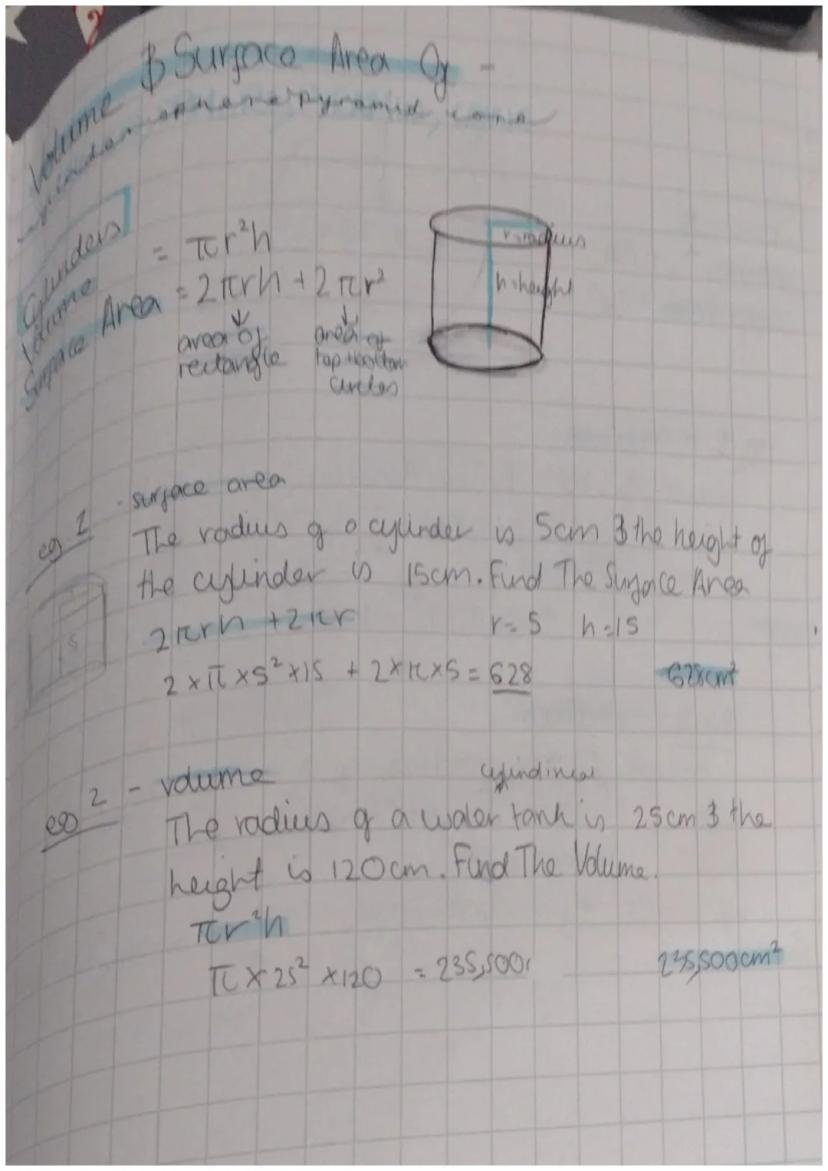 Volume & Surface Area Of -
cylinder sphere pyramid, cone
Cylinders
Volume = πr²h
Surface Area = 2πrh + 2πr²
area of rectangle
area of top + bottom circles
r=radius
h=height
eg 1 - surface area
The radius of a cylinder is 5cm & the height of
the cylinder is 15cm. Find The Surface Area
2πrh + 2πr r=5 h=15
2×π×5²×15 + 2×π×5 = 628 628cm²
5
eg 2 - volume
The radius of a water tank is 25cm & the
height is 120cm. Find The Volume.
πr²h
π×25²×120 = 235,500 235,500cm²